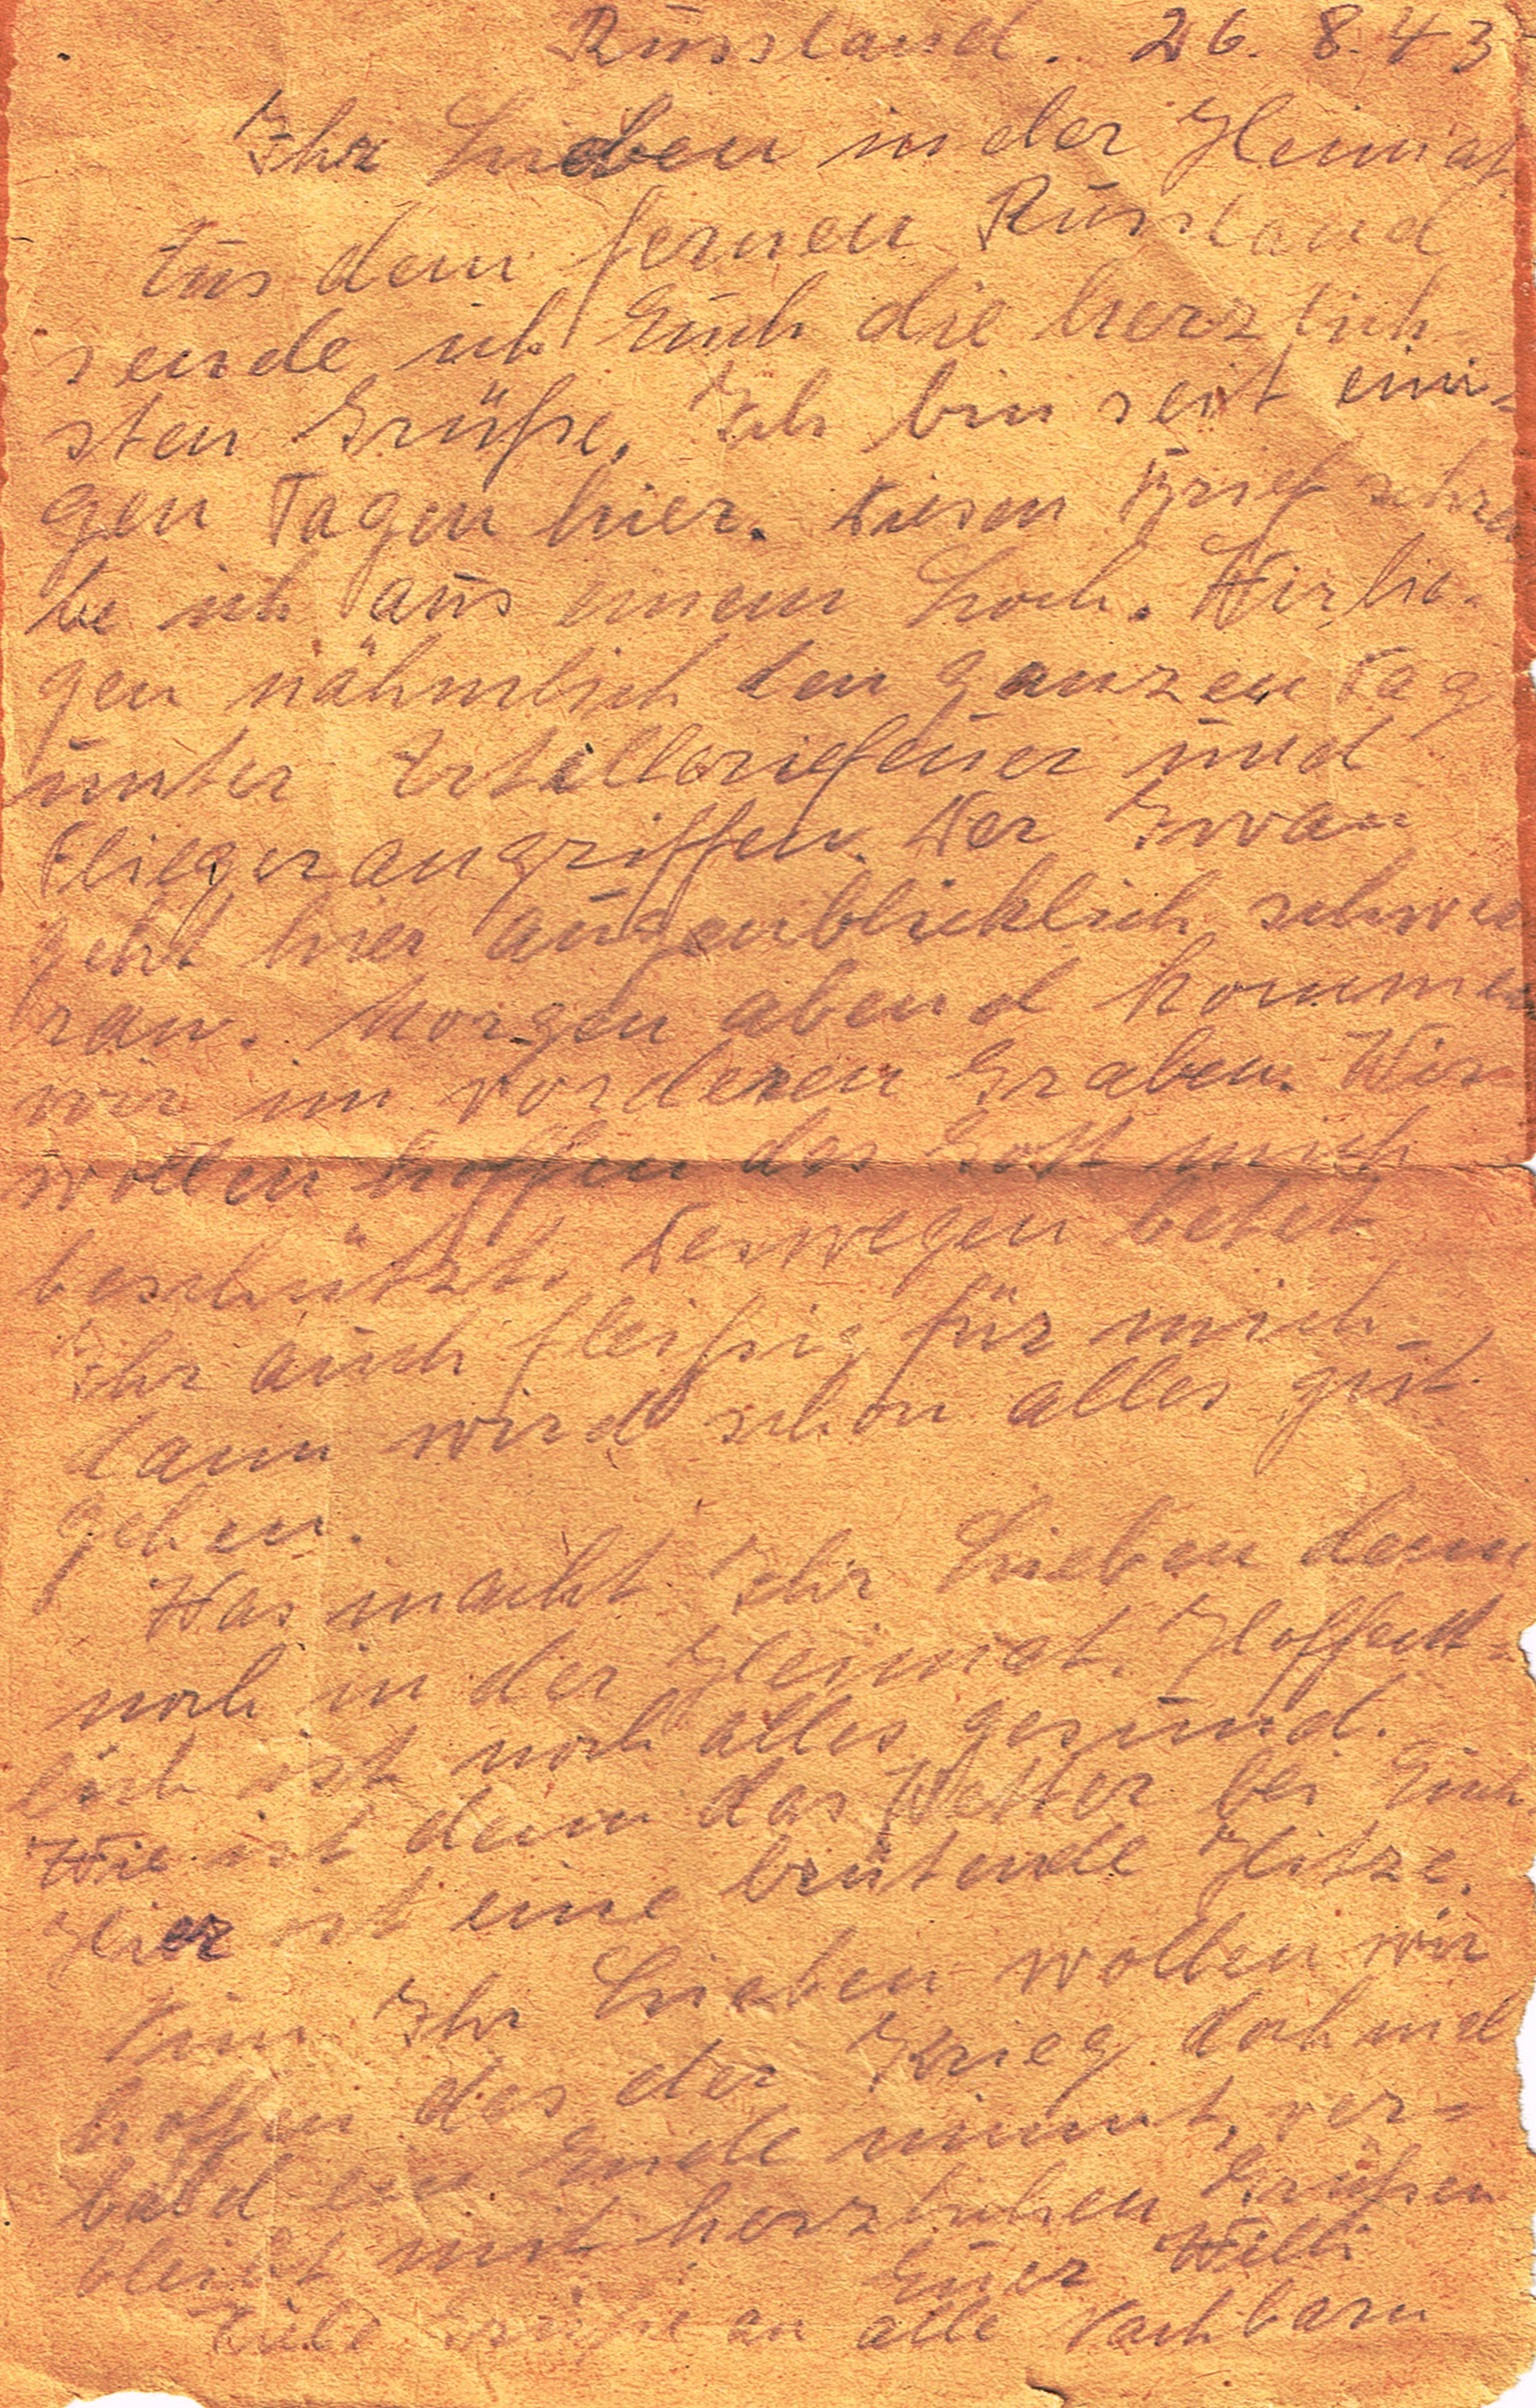 Russland. 26. 8. 43
Ihr Lieben in der Heimat
Aus dem fernen Russland
sende ich Euch die herzlich-
sten Grüße. Ich bin seit eini-
gen Tagen hier. Diesen Brief schrei
be ich aus einem Loch. Wir lie-
gen nähmlich den ganzen Tag
unter Artilleriefeuer und
Fliegerangriffen. Der Iwan
geht hier augenblicklich schwer
ran. Morgen abend kommen
wir im vorderen Graben. Wir
wollen hoffen das Gott mich
beschützt. Deswegen betet
Ihr auch fleißig für mich
dann wird schon alles gut
gehen.
Was macht Ihr Lieben denn
noch in der Heimat. Hoffent-
lich ist noch alles gesund.
Wie ist denn das Wetter bei Euch
Hier ist eine brütende Hitze.
Nun Ihr Lieben wollen wir
hoffen das der Krieg doch mal
bald ein Ende nimmt, ver-
bleibt mit herzlichen Grüßen
Euer Willi
Viele Grüße an alle Nachbarn